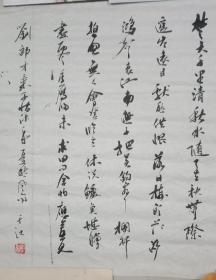 楚天千里清秋水随天去秋无际
遥岑远目献愁供恨落日楼头断
鸿声里江南游子把吴钩看了栏杆
拍遍无人会登临意休说鲈鱼堪脍
尽西风季鹰归未求田问舍怕应羞见
刘郎才气可惜流年忧愁风雨